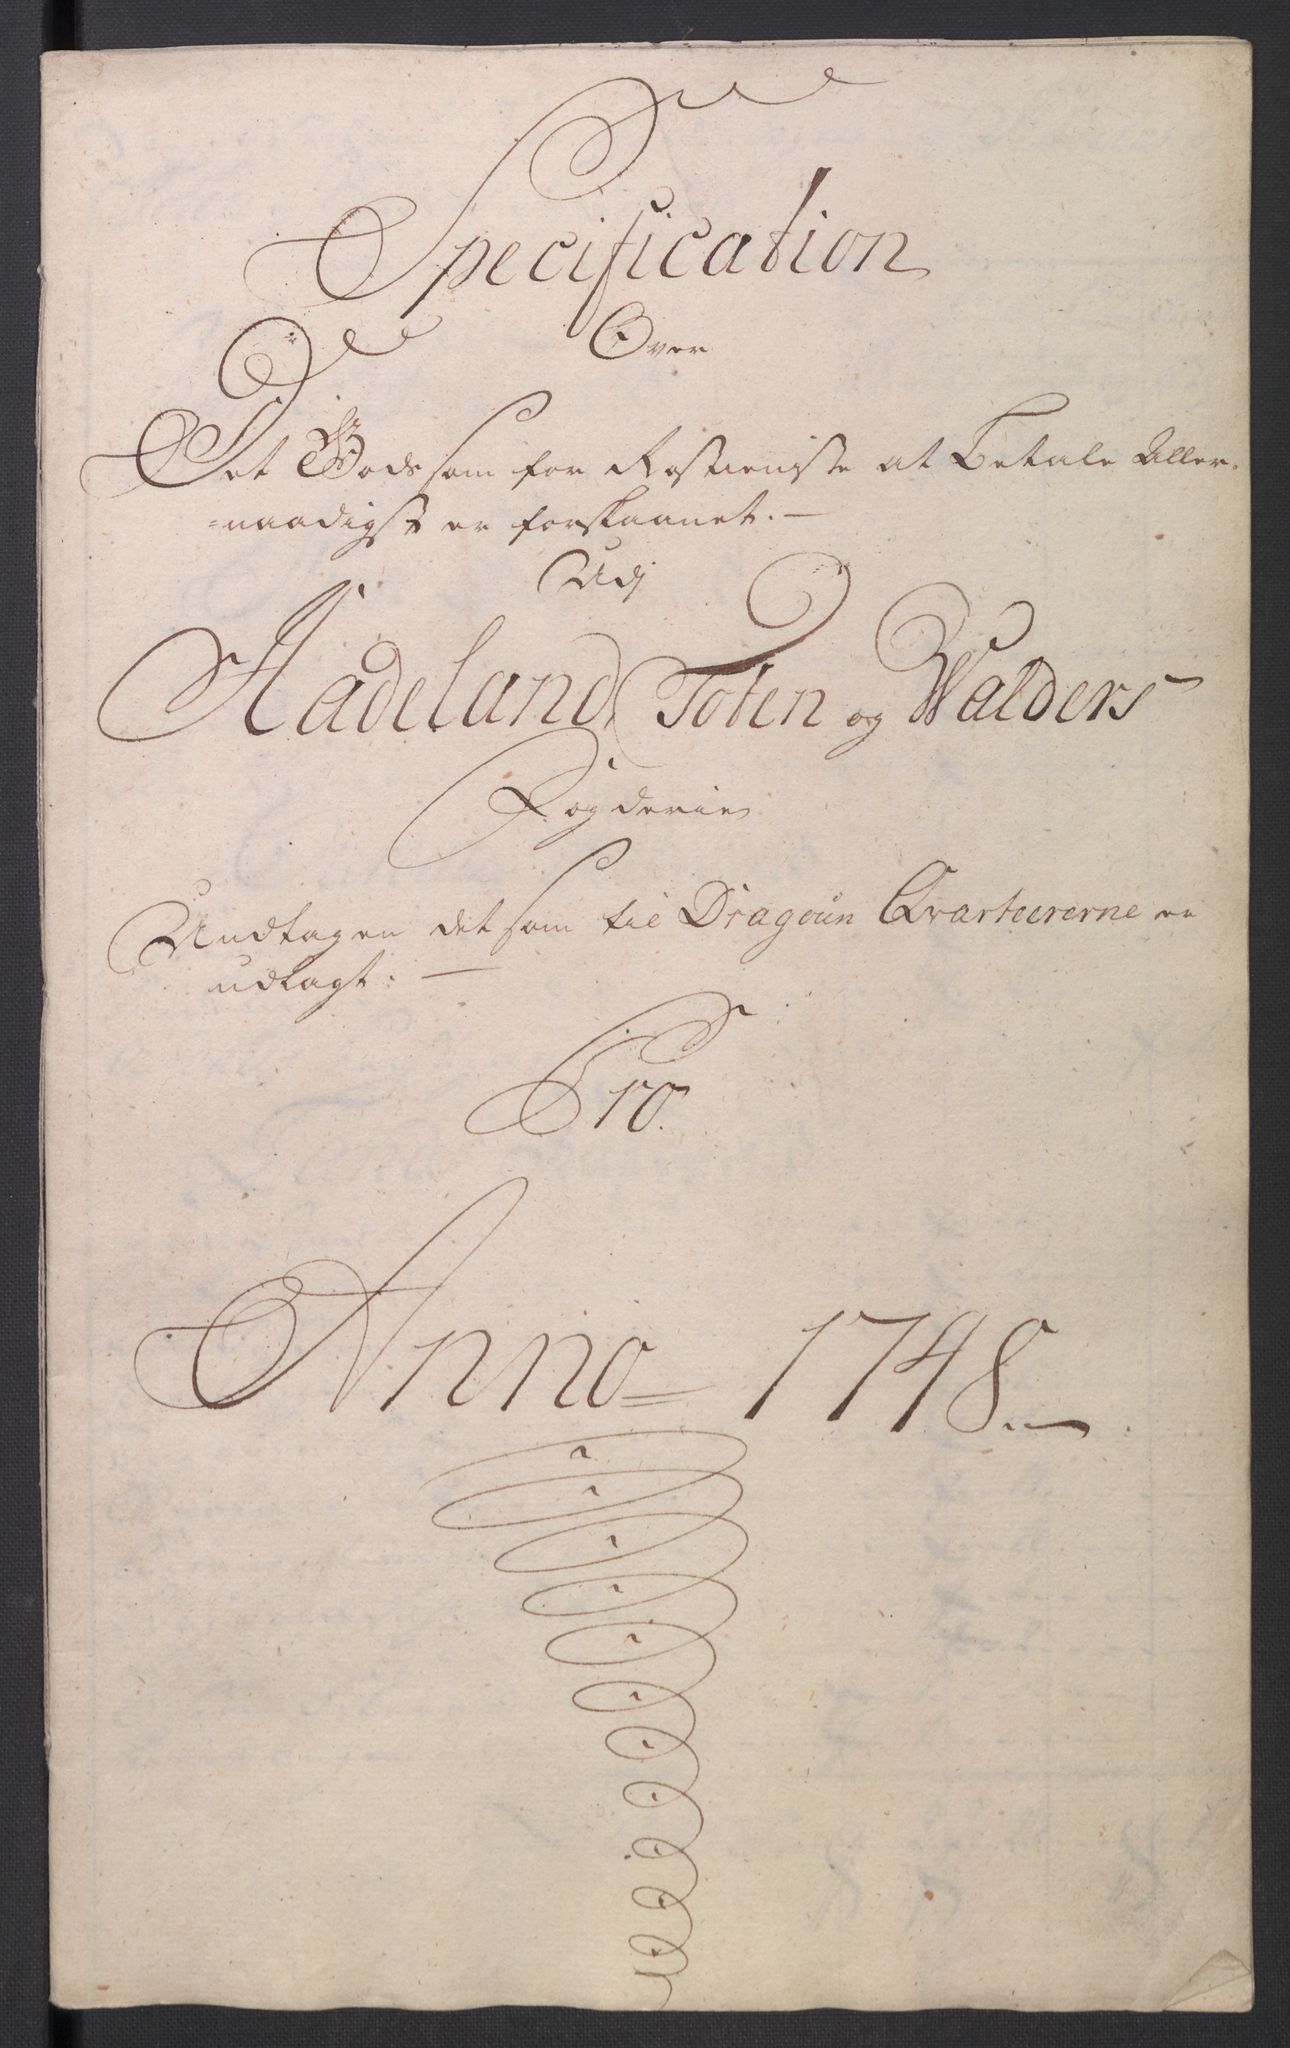 Specification
Over
Det Gods som for Rostieniste at Betale Aller-
=naadigst er forskaanet. —
Udj
Hadeland, Toten og Walders
Fogderie
Undtagen det som til Dragoun Qvarteererne er
udlagt: —
Pro
Anno = 1748. —